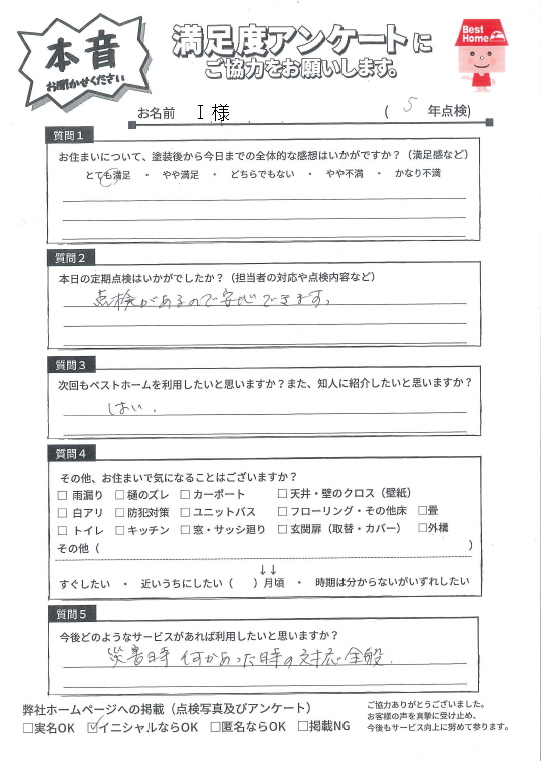 本音
お聞かせください
満足度アンケートに
ご協力をお願いします。
Best Home
お名前 I 様 ( 5 年点検)
質問1
お住まいについて、塗装後から今日までの全体的な感想はいかがですか?(満足感など)
とても満足 ・ やや満足 ・ どちらでもない ・ やや不満 ・ かなり不満
質問2
本日の定期点検はいかがでしたか?(担当者の対応や点検内容など)
点検があるので安心できます。
質問3
次回もベストホームを利用したいと思いますか?また、知人に紹介したいと思いますか?
はい.
質問4
その他、お住まいで気になることはございますか?
□ 雨漏り □ 樋のズレ □ カーポート □ 天井・壁のクロス(壁紙)
□ 白アリ □ 防犯対策 □ ユニットバス □ フローリング・その他床 □畳
□ トイレ □ キッチン □ 窓・サッシ廻り □ 玄関扉(取替・カバー) □外構
その他( )
↓↓
すぐしたい ・ 近いうちにしたい( )月頃 ・ 時期は分からないがいずれしたい
質問5
今後どのようなサービスがあれば利用したいと思いますか?
災害時 何かあった時の対応全般.
弊社ホームページへの掲載(点検写真及びアンケート)
□実名OK ☑イニシャルならOK □匿名ならOK □掲載NG
ご協力ありがとうございました。
お客様の声を真摯に受け止め、
今後もサービス向上に努めて参ります。